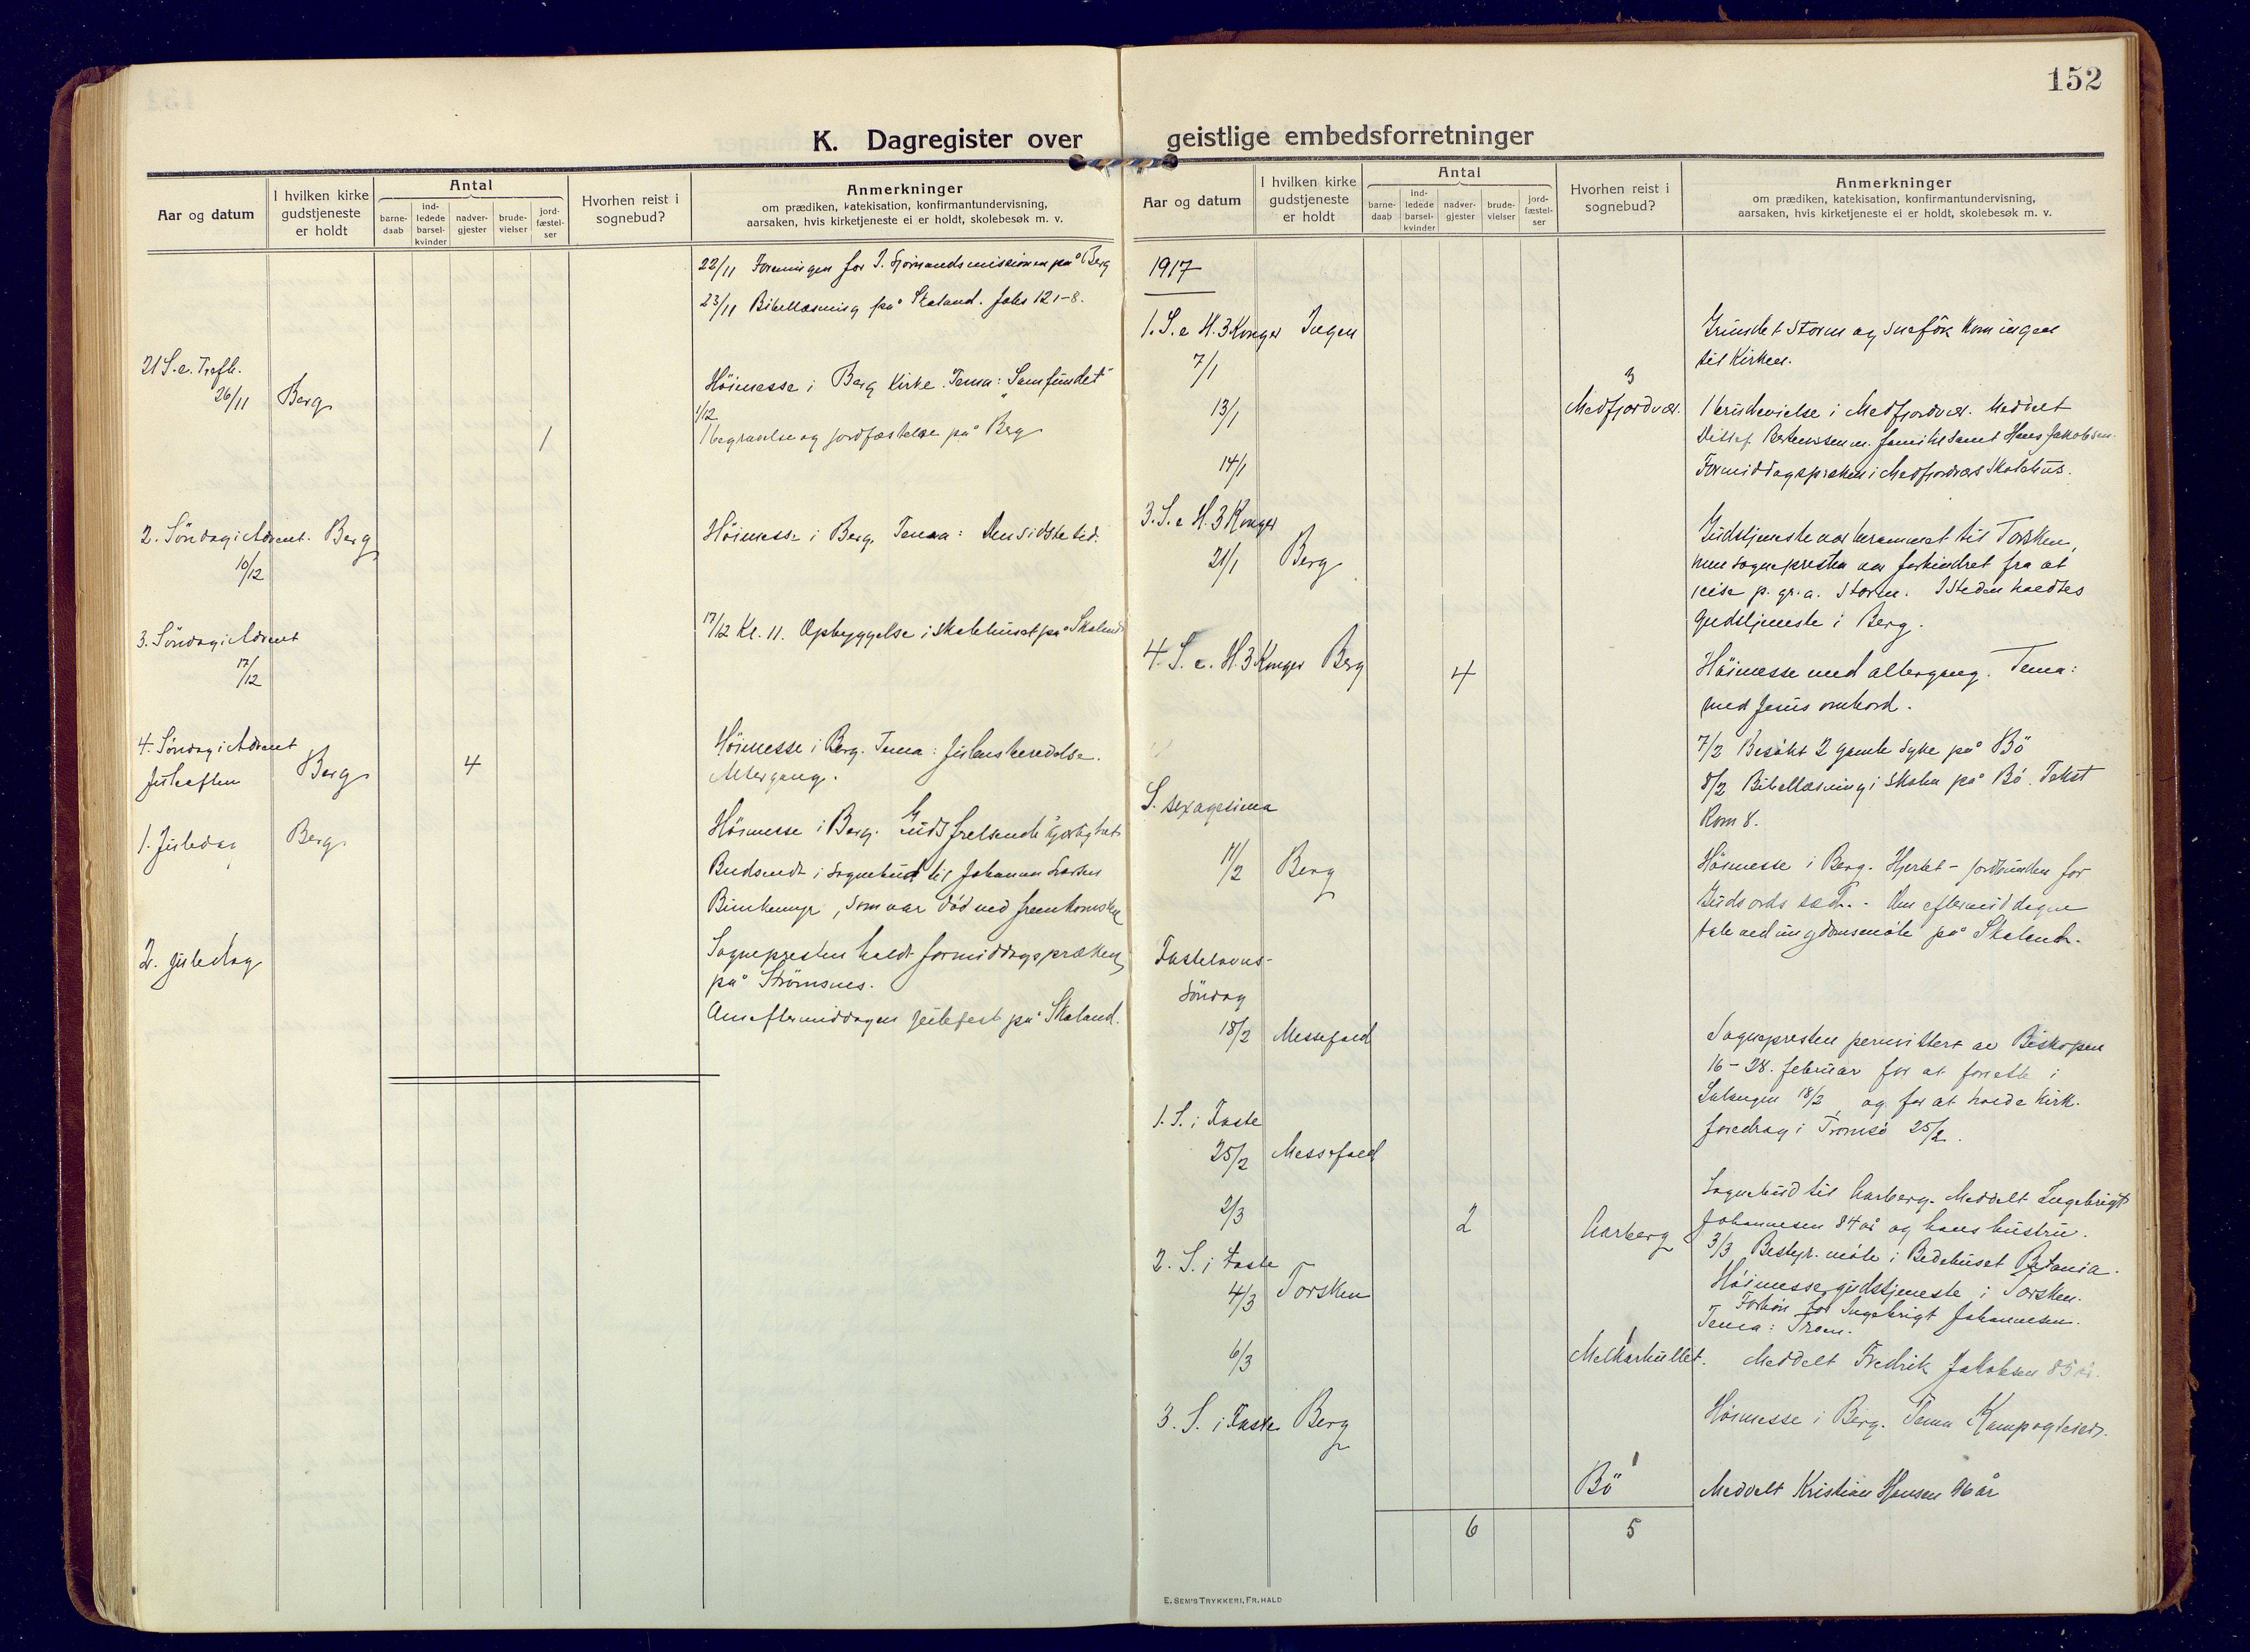 152
K. Dagregister over geistlige embedsforretninger
Aar og datum
I hvilken kirke gudstjeneste er holdt
Antal
barne-daab
ind-ledede barsel-kvinder
nadver-gjester
brude-vielser
jord-fæstel-ser
Hvorhen reist i sognebud?
Anmerkninger
om prædiken, katekisation, konfirmantundervisning,
aarsaken, hvis kirketjeneste ei er holdt, skolebesøk m. v.
22/11 Foreningen for I. Sjömandsmissionen på Berg
23/11 Bibellæsning på Skaland. Johs 12 1-8.
21 S. e. Trefh.
26/11 Berg
Höimesse i Berg Kirke. Tema: "Samfundet"
1/12
1 1 begravelse og jordfæstelse på Berg
2. Söndag i Advent. Berg
10/12
Höimesse i Berg. Tema: Den sidste tid.
3. Söndag i Advent
17/12
17/12 Kl. 11. Opbyggelse i skolehuset på Skaland
4. Söndag i Advent
Juleaften Berg 4
Höimesse i Berg. Tema: Julens beredelse.
Altergang.
1. Juledag Berg
Höimesse i Berg. Guds frelsende kjærlighet
Budsendt i sognebud til Johanna
som var död ved fremkomsten
2. juledag
Sognepresten holdt formiddagspræken
på Strömsnes.
Om eftermiddagen julefest på Skaland.
Aar og datum
I hvilken kirke gudstjeneste er holdt
Antal
barne-daab
ind-ledede barsel-kvinder
nadver-gjester
brude-vielser
jord-fæstel-ser
Hvorhen reist i sognebud?
Anmerkninger
om prædiken, katekisation, konfirmantundervisning,
aarsaken, hvis kirketjeneste ei er holdt, skolebesøk m. v.
1917
1. S. e H. 3 Konger Ingen
7/1
Grundet storm og snefök kom ingen
til Kirken.
3
13/1 Medfjordvær. 1 brudevielse i Medfjordvær. Meddelt
m. familie samt Hans Jakobsen.
14/1 Formiddagspræken i Medfjordvær Skolehus.
3. S. e H. 3 Konger
21/1 Berg
Gudstjeneste var berammet til Torsken,
men sognepresten var forhindret fra at
reise p. gr. a. storm. Isteden holdtes
gudstjeneste i Berg.
4. S. e. H. 3 Konger Berg 4
Höimesse med altergang. Tema:
med Jesus ombord.
7/2 Besökt 2 gamle syke på Bö
8/2 Bibellæsning i Skolen på Bö. Tekst
Rom 8.
S. sexagesima
11/2 Berg
Höimesse i Berg. Hjertet - jordbunden for
Guds ords sæd. - Om eftermiddagen
tale ved ungdomsmöte på Skaland.
Fastelavns-
söndag
18/2 Messefald
Sognepresten permittert av Biskopen
16-28. februar for at forrette i
Salangen 18/2, og for at holde kirk.
foredrag i Tromsö 25/2.
1. S. i Faste
25/2 Messefald
2/3 2 Harberg
Sognebud til Harberg. Meddelt Ingebrigt
Johannesen 84 år og hans hustru.
3/3 Bestyr. möte i Bedehuset Betania.
2. S. i Faste
4/3 Torsken
Höimessegudstjeneste i Torsken.
Forbön for Ingebrigt Johannesen.
Tema: Troen.
1
6/3 Melkarhullet. Meddelt Fredrik Jakobsen 85 år.
3. S. i Faste Berg
Höimesse i Berg. Tema Kamp og seier.
1
Bö Meddelt Kristian Hansen 96 år
6 5
E. SEM'S TRYKKERI, FR. HALD